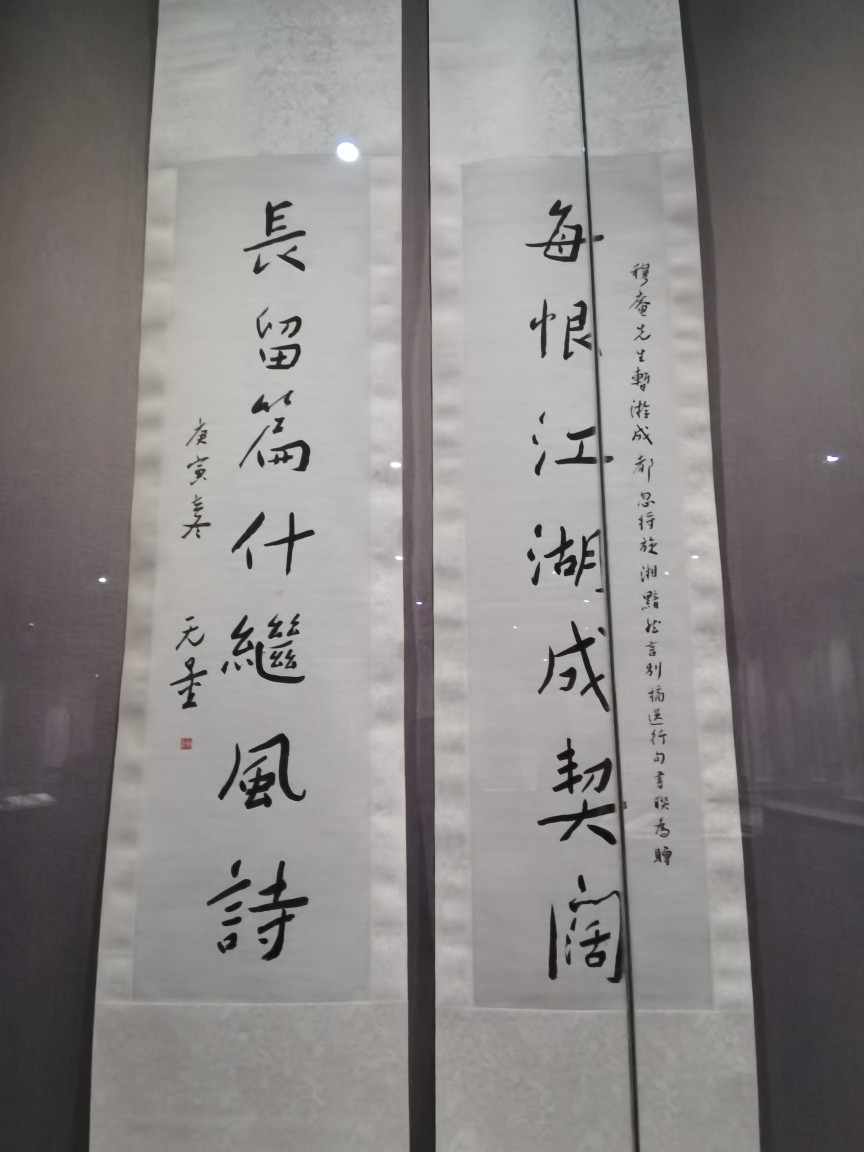 每恨江湖成契闊
穆庵先生暫游成都忽将旋湘黯然言别摘送行句書联為贈
長留篇什繼風詩
庚寅寒
无量